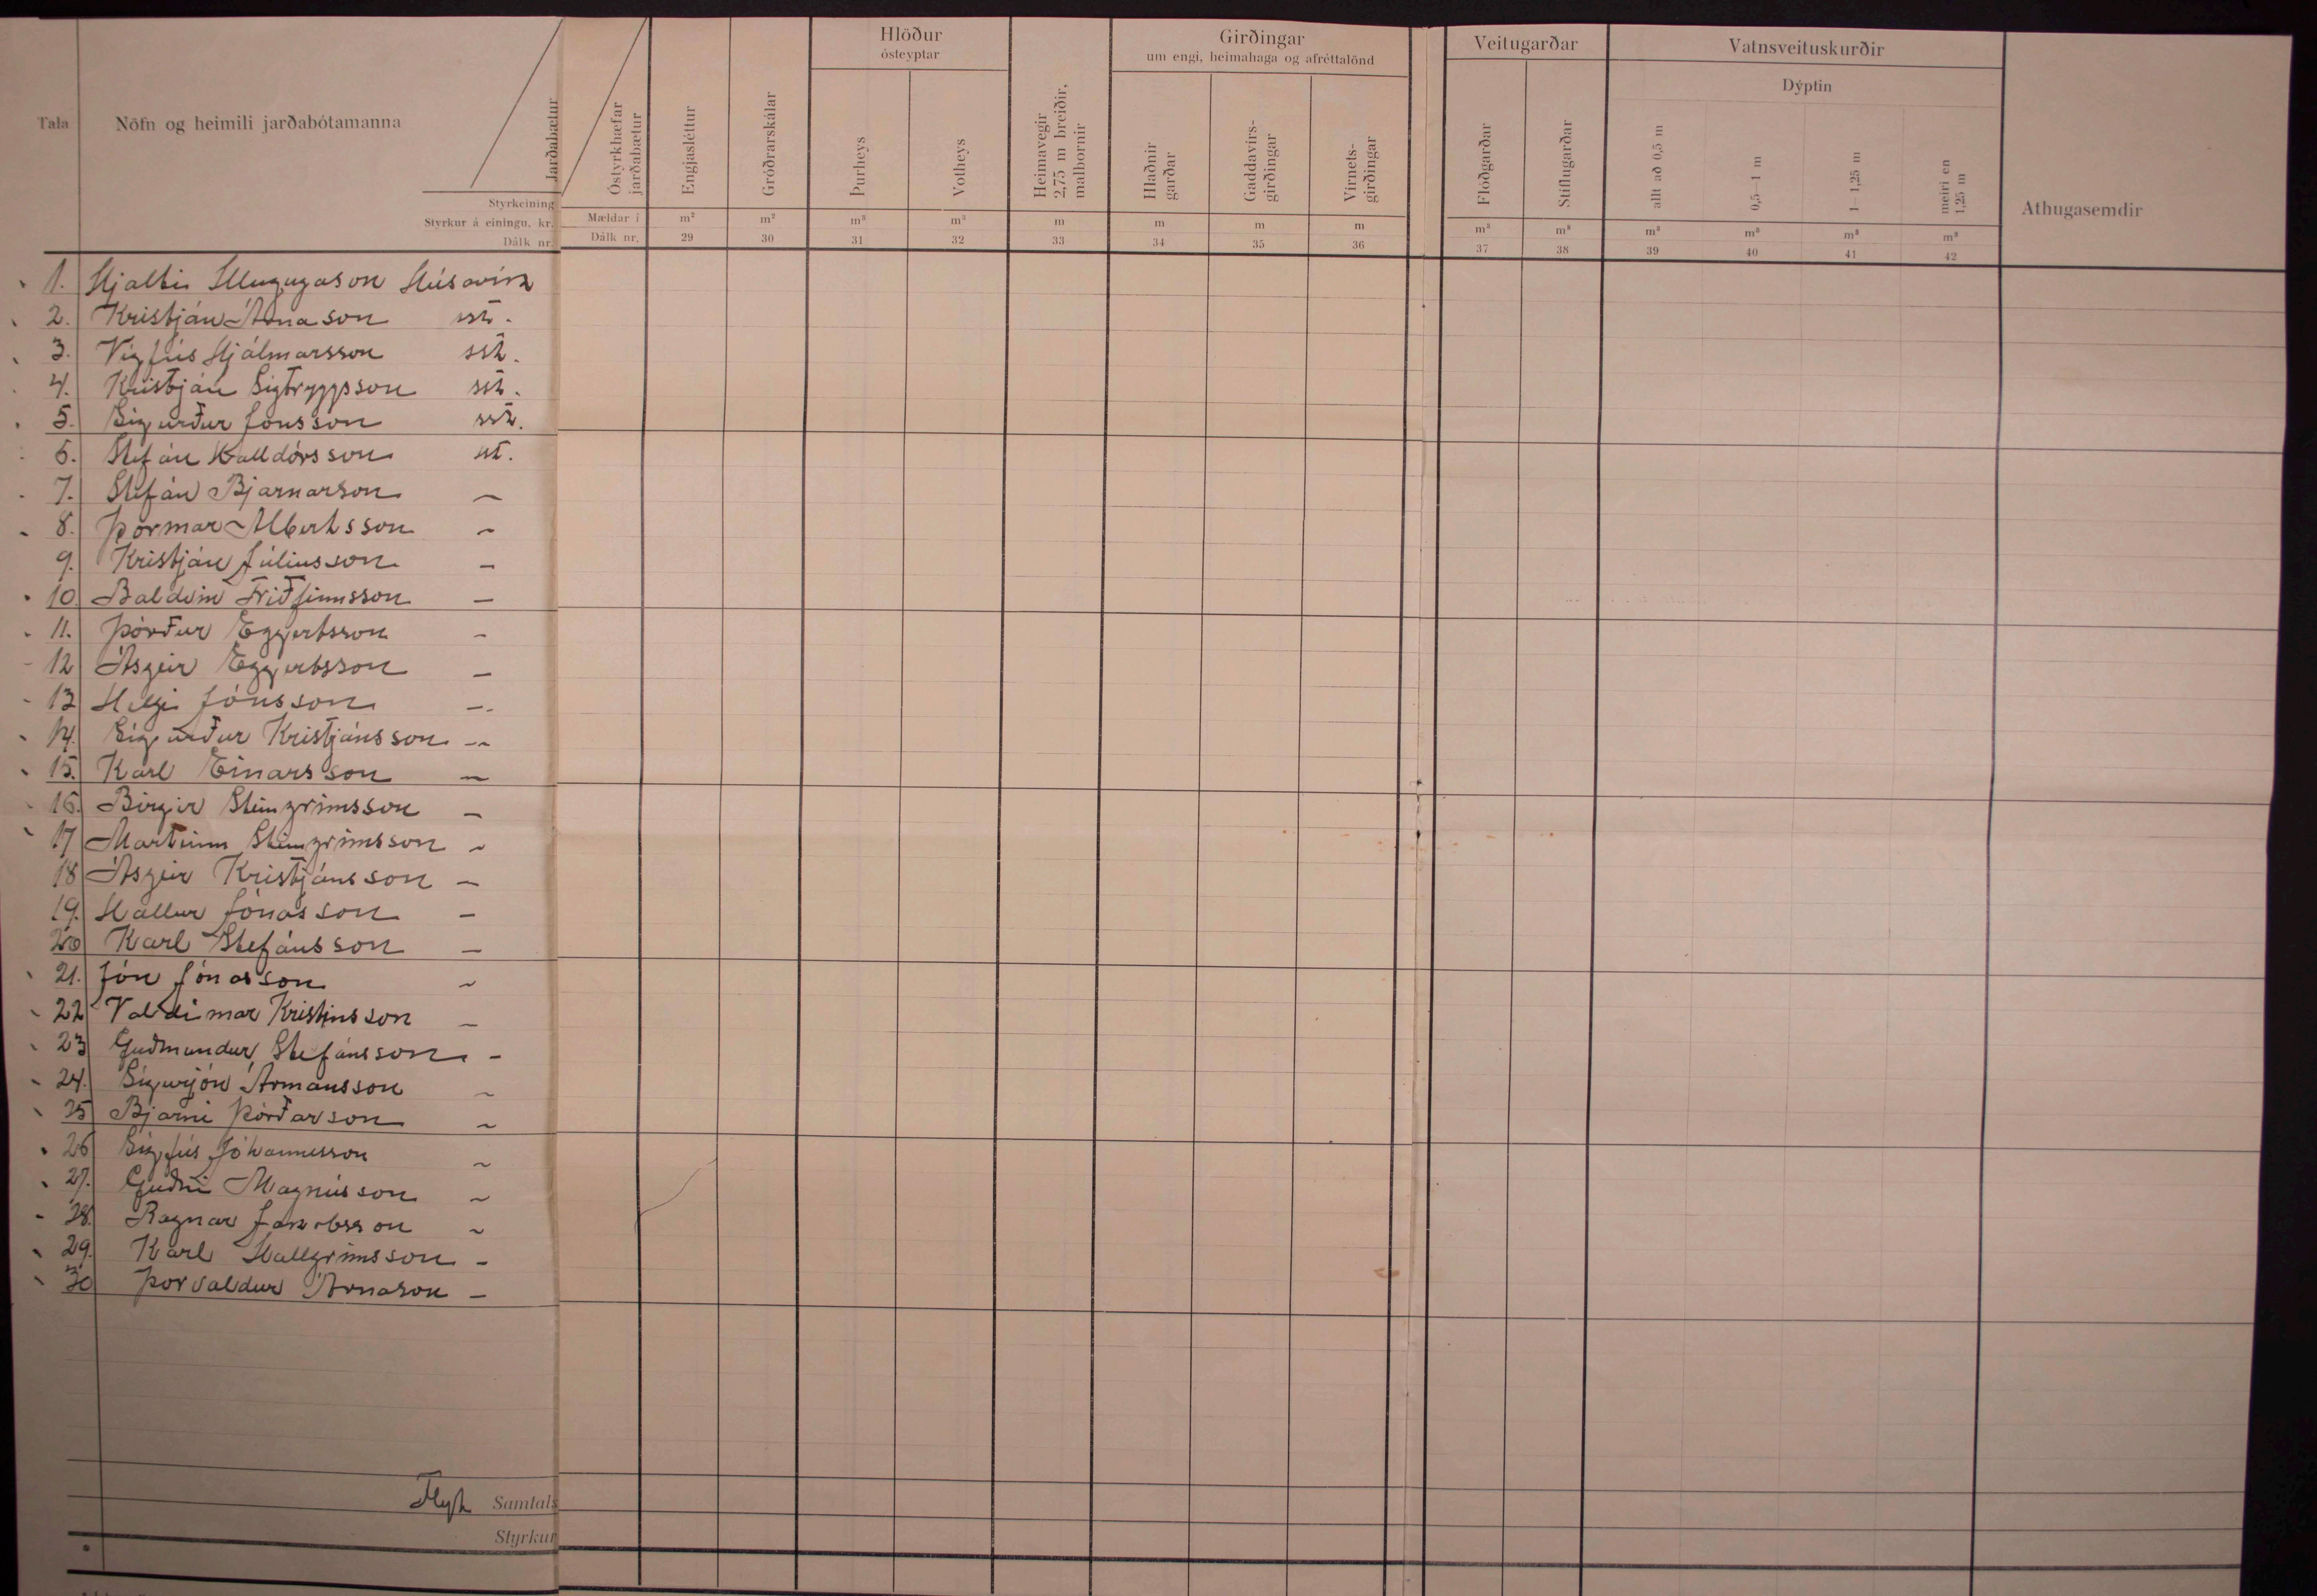 Hlöður
ósteyptar
Girðingar
um engi, heimahaga og afréttalönd
Veitugarðar
Vatnsveituskurðir
Dýptin
Tala
Nöfn og heimili jarðabótamanna
Jarðabætur
Óstyrkhæfar jarðabætur
Engjasléttur
Gróðrarskálar
Þurheys
Votheys
Heimavegir 2,75 m breiðir, malbornir
Hlaðnir garðar
Gaddavírs-girðingar
Vírnets-girðingar
Flóðgarðar
Stíflugarðar
allt að 0,5 m
0,5—1 m
1—1,25 m
meiri en 1,25 m
Athugasemdir
Styrkeining
Styrkur á einingu, kr.
Mældar í m² m² m³ m³ m m m m m³ m³ m³ m³ m³ m³
Dálk nr.
Dálk nr. 29 30 31 32 33 34 35 36 37 38 39 40 41 42
1. Hjalti Illugason Húsavík
2. Kristján Árnason
3. Vigfús Hjálmarsson
4. Kristján Sigtryggsson
5. Sigurður Jónsson
6. Stefán Halldórsson
7. Stefán Bjarnarson –
8. Þormar Albertsson –
9. Kristján Júlíusson –
10. Baldvin Friðfinnsson –
11. Þórður Eggertsson –
12 Ásgeir Eggertsson –
13 Helgi Jónsson –
14. Sigurður Kristjánsson –
15. Karl Einarsson –
16. Birgir Steingrímsson –
17 Marteinn Steingrímsson –
18 Ásgeir Kristjánsson –
19. Hallur Jónasson –
20 Karl Stefánsson –
21. Jón Jónasson –
22 Valdimar Kristinsson –
23 Guðmundur Stefánsson –
24. Sigurjón Ármansson –
25 Bjarni Þórðarson –
26 Sigfús Jóhannesson –
27. Guðni Magnússon –
28. Ragnar Jakobsson –
29. Karl Hallgrímsson –
30 Þorvaldur Árnason –
Flyt Samtals
Styrkur